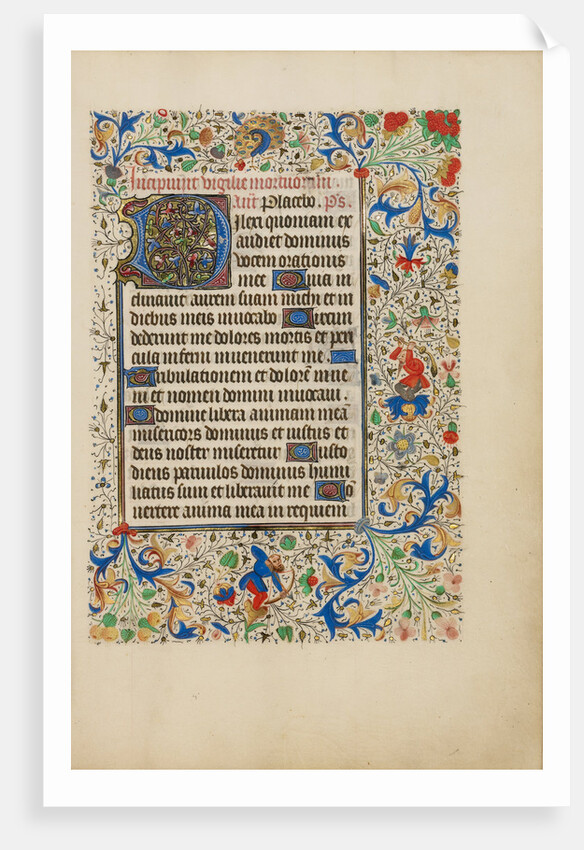 Incipiunt vigilie mortuorum.
añt Placebo. p̄s.
Dilexi quoniam ex
audiet dominus
vocem orationis
mee Quia in
clinavit aurem suam michi et in
diebus meis invocabo Circum
dederunt me dolores mortis et peri
cula inferni invenerunt me
Tribulationem et dolorē inve
ni et nomen domini invocavi.
O domine libera animam meā
misericors dominus et iustus et
deus noster miseretur Custo
diens parvulos dominus humi
liatus sum et liberavit me Cō
vertere anima mea in requiem